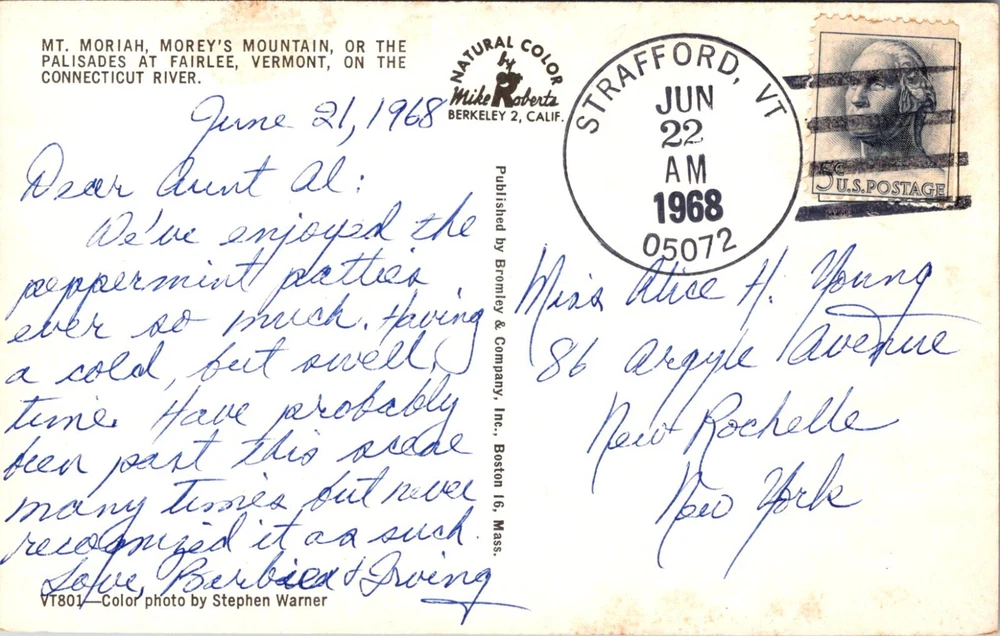 MT. MORIAH, MOREY'S MOUNTAIN, OR THE
PALISADES AT FAIRLEE, VERMONT, ON THE
CONNECTICUT RIVER.
NATURAL COLOR
by
Mike Roberts
BERKELEY 2, CALIF.
STRAFFORD, VT
JUN
22
AM
1968
05072
5¢ U.S. POSTAGE
June 21, 1968
Dear Aunt Al:
We've enjoyed the
peppermint patties
ever so much. Having
a cold, but swell,
time. Have probably
been past this scene
many times but never
recognized it as such.
Love, & Irving
Published by Bromley & Company, Inc., Boston 16, Mass.
Miss Alice H. Young
86 Argyle Avenue
New Rochelle
New York
VT801—Color photo by Stephen Warner